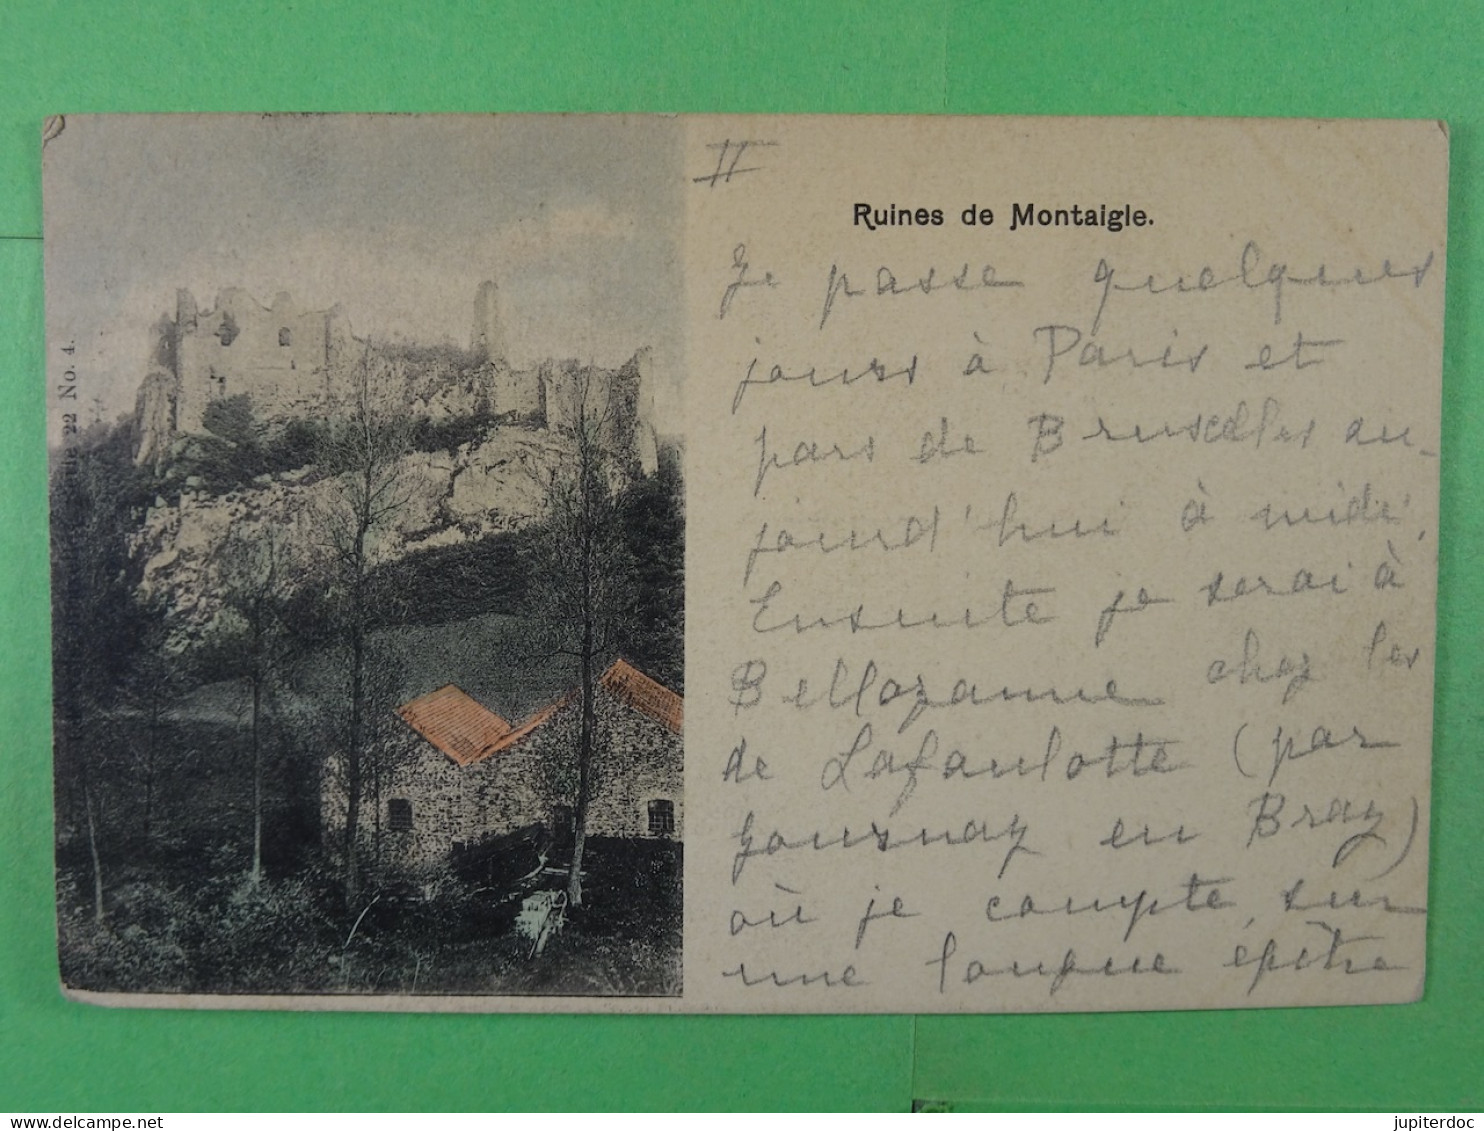 II
Ruines de Montaigle.
Je passe quelques
jours à Paris et
pars de Bruxelles au-
jourd'hui à midi.
Ensuite je serai à
Bellozanne chez les
de Lafaulotte (par
Gournay en Bray)
où je compte sur
une longue épître
22 No. 4.
delcampe.net
jupiterdoc